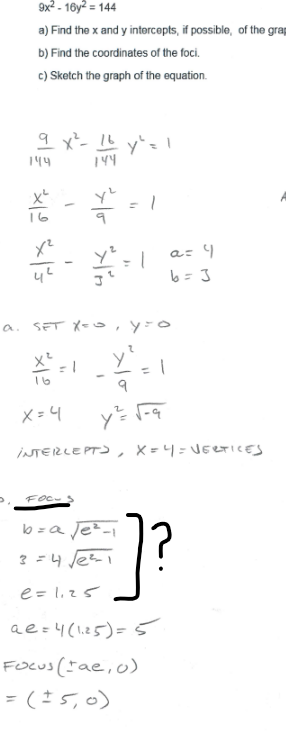 9x² - 16y² = 144
a) Find the x and y intercepts, if possible, of the gra
b) Find the coordinates of the foci.
c) Sketch the graph of the equation.
9/144 x² - 16/144 y² = 1
x²/16 - y²/9 = 1
x²/4² - y²/3² = 1 a = 4
b = 3
a. SET X=0, Y=0
x²/16 = 1 - y²/9 = 1
X = 4 y² = √-9
INTERCEPTS, X = 4 = VERTICES
. FOCUS
b = a √e²-1
3 = 4 √e²-1 ?
e = 1.25
ae = 4(1.25) = 5
FOCUS (±ae, 0)
= (±5, 0)